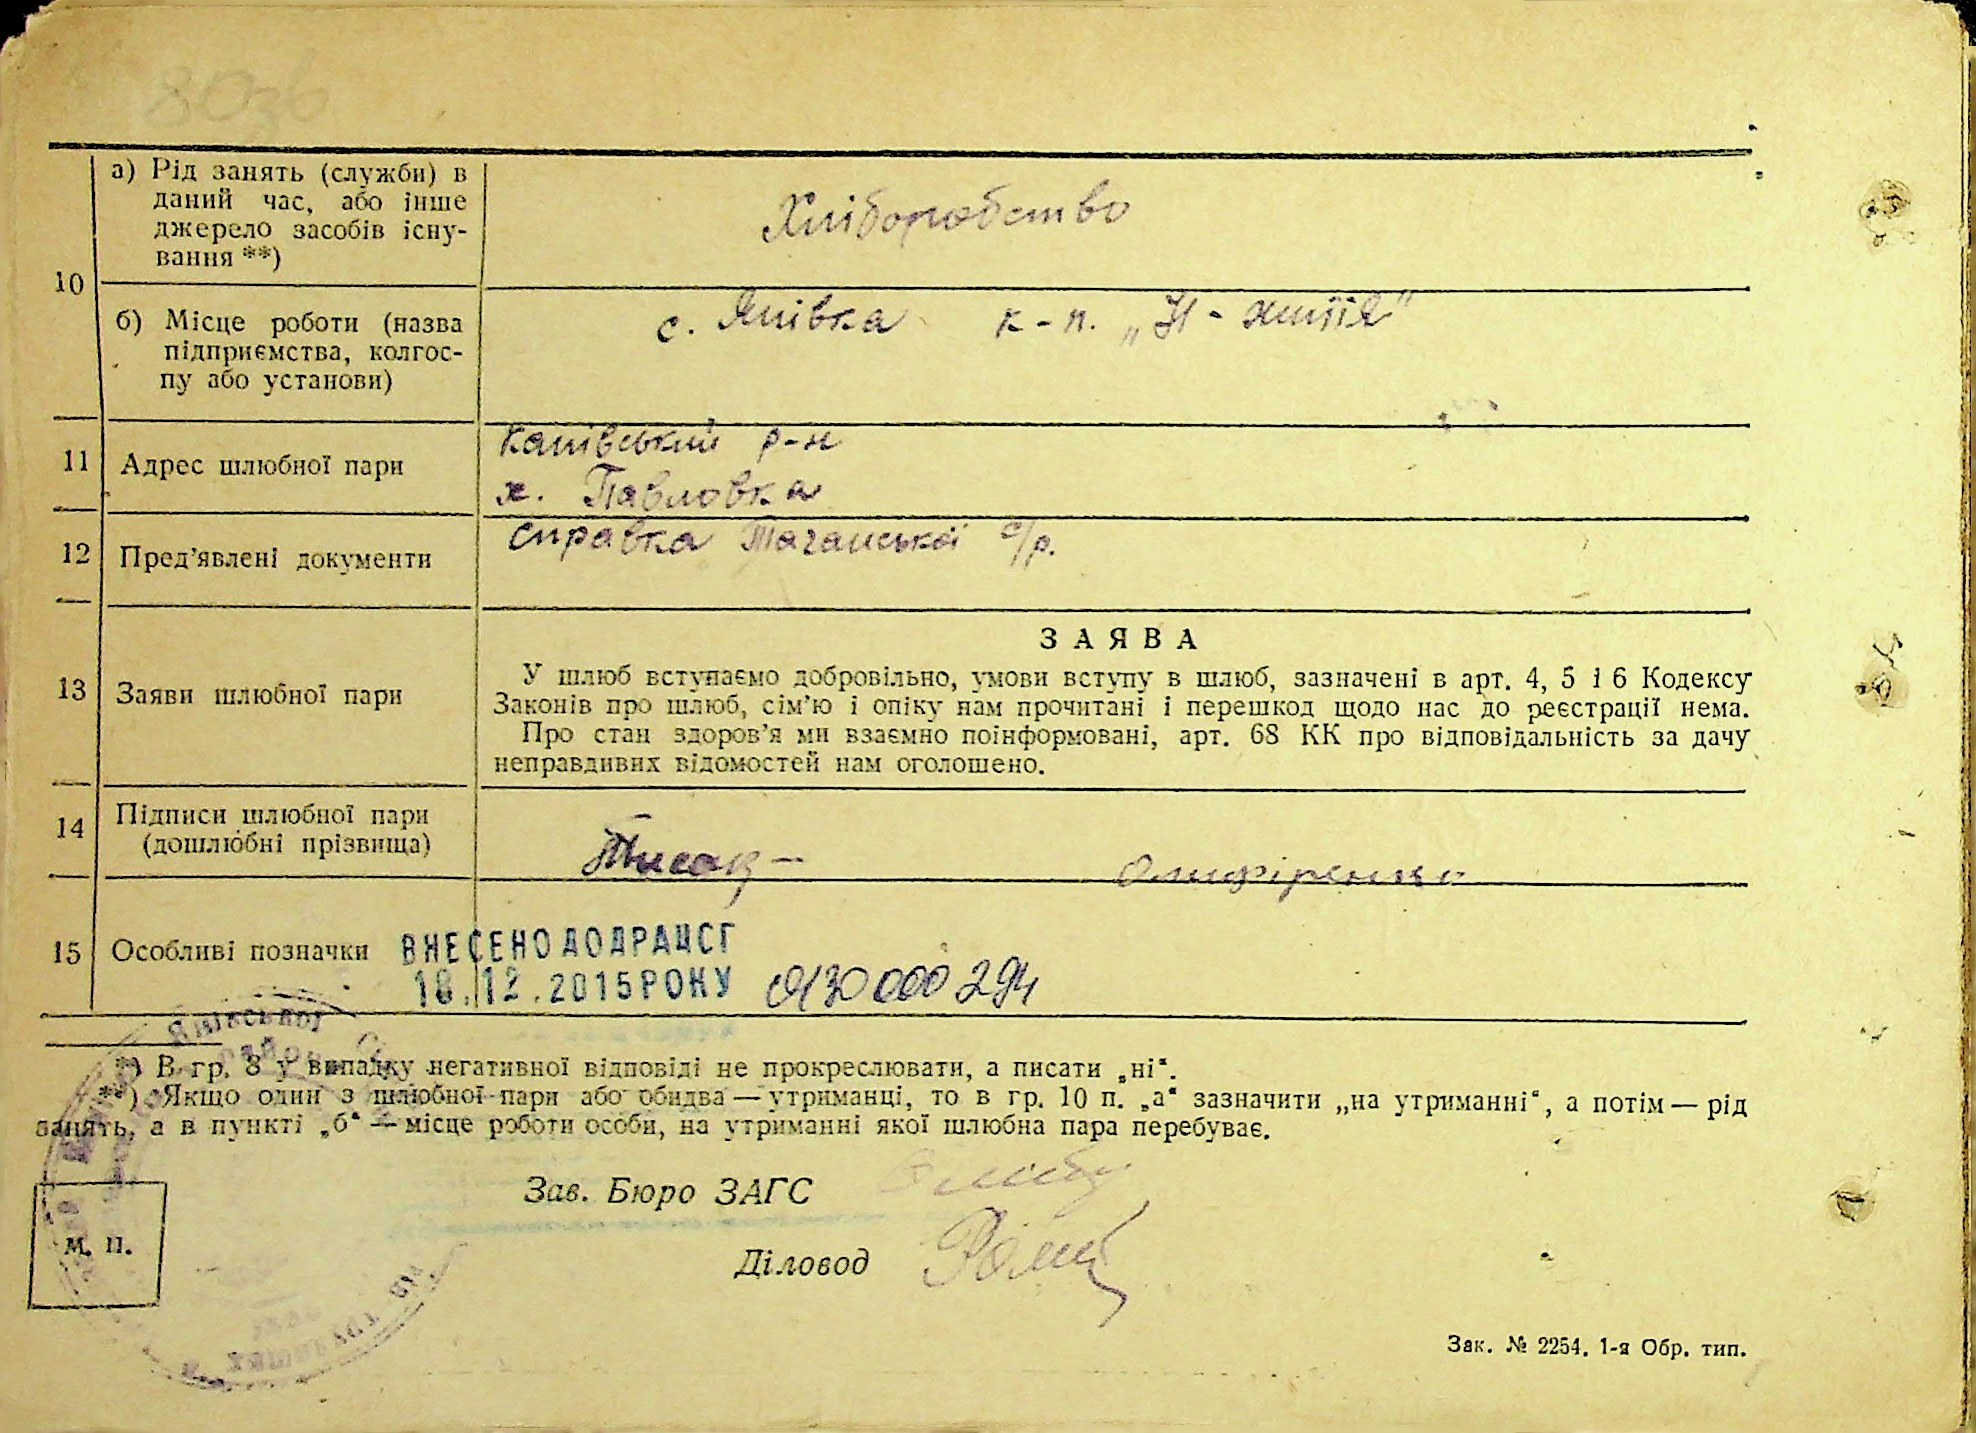 а) Рід занять (служби) в
даний час, або інше
джерело засобів існу-
вання **)
Хліборобство
10
б) Місце роботи (назва
підприємства, колгос-
пу або установи)
с. Янівка к-п.
11 Адрес шлюбної пари
Канівський р-н
х. Павловка
12 Пред’явлені документи
справка Таганської с/р.
13 Заяви шлюбної пари
ЗАЯВА
У шлюб вступаємо добровільно, умови вступу в шлюб, зазначені в арт. 4, 5 і 6 Кодексу
Законів про шлюб, сім’ю і опіку нам прочитані і перешкод щодо нас до реєстрації нема.
Про стан здоров’я ми взаємно поінформовані, арт. 68 КК про відповідальність за дачу
неправдивих відомостей нам оголошено.
14 Підписи шлюбної пари
(дошлюбні прізвища)
Олифіренко
15 Особливі позначки
ВНЕСЕНО ДО ДРАЦСГ
18.12.2015 РОКУ 00130000294
*) В гр. 8 у випадку негативної відповіді не прокреслювати, а писати „ні“.
**) Якщо один з шлюбної пари або обидва — утриманці, то в гр. 10 п. „а“ зазначити „на утриманні“, а потім — рід
занять, а в пункті „б“ — місце роботи особи, на утриманні якої шлюбна пара перебуває.
Зав. Бюро ЗАГС
М. П.
Діловод
Зак. № 2254. 1-я Обр. тип.